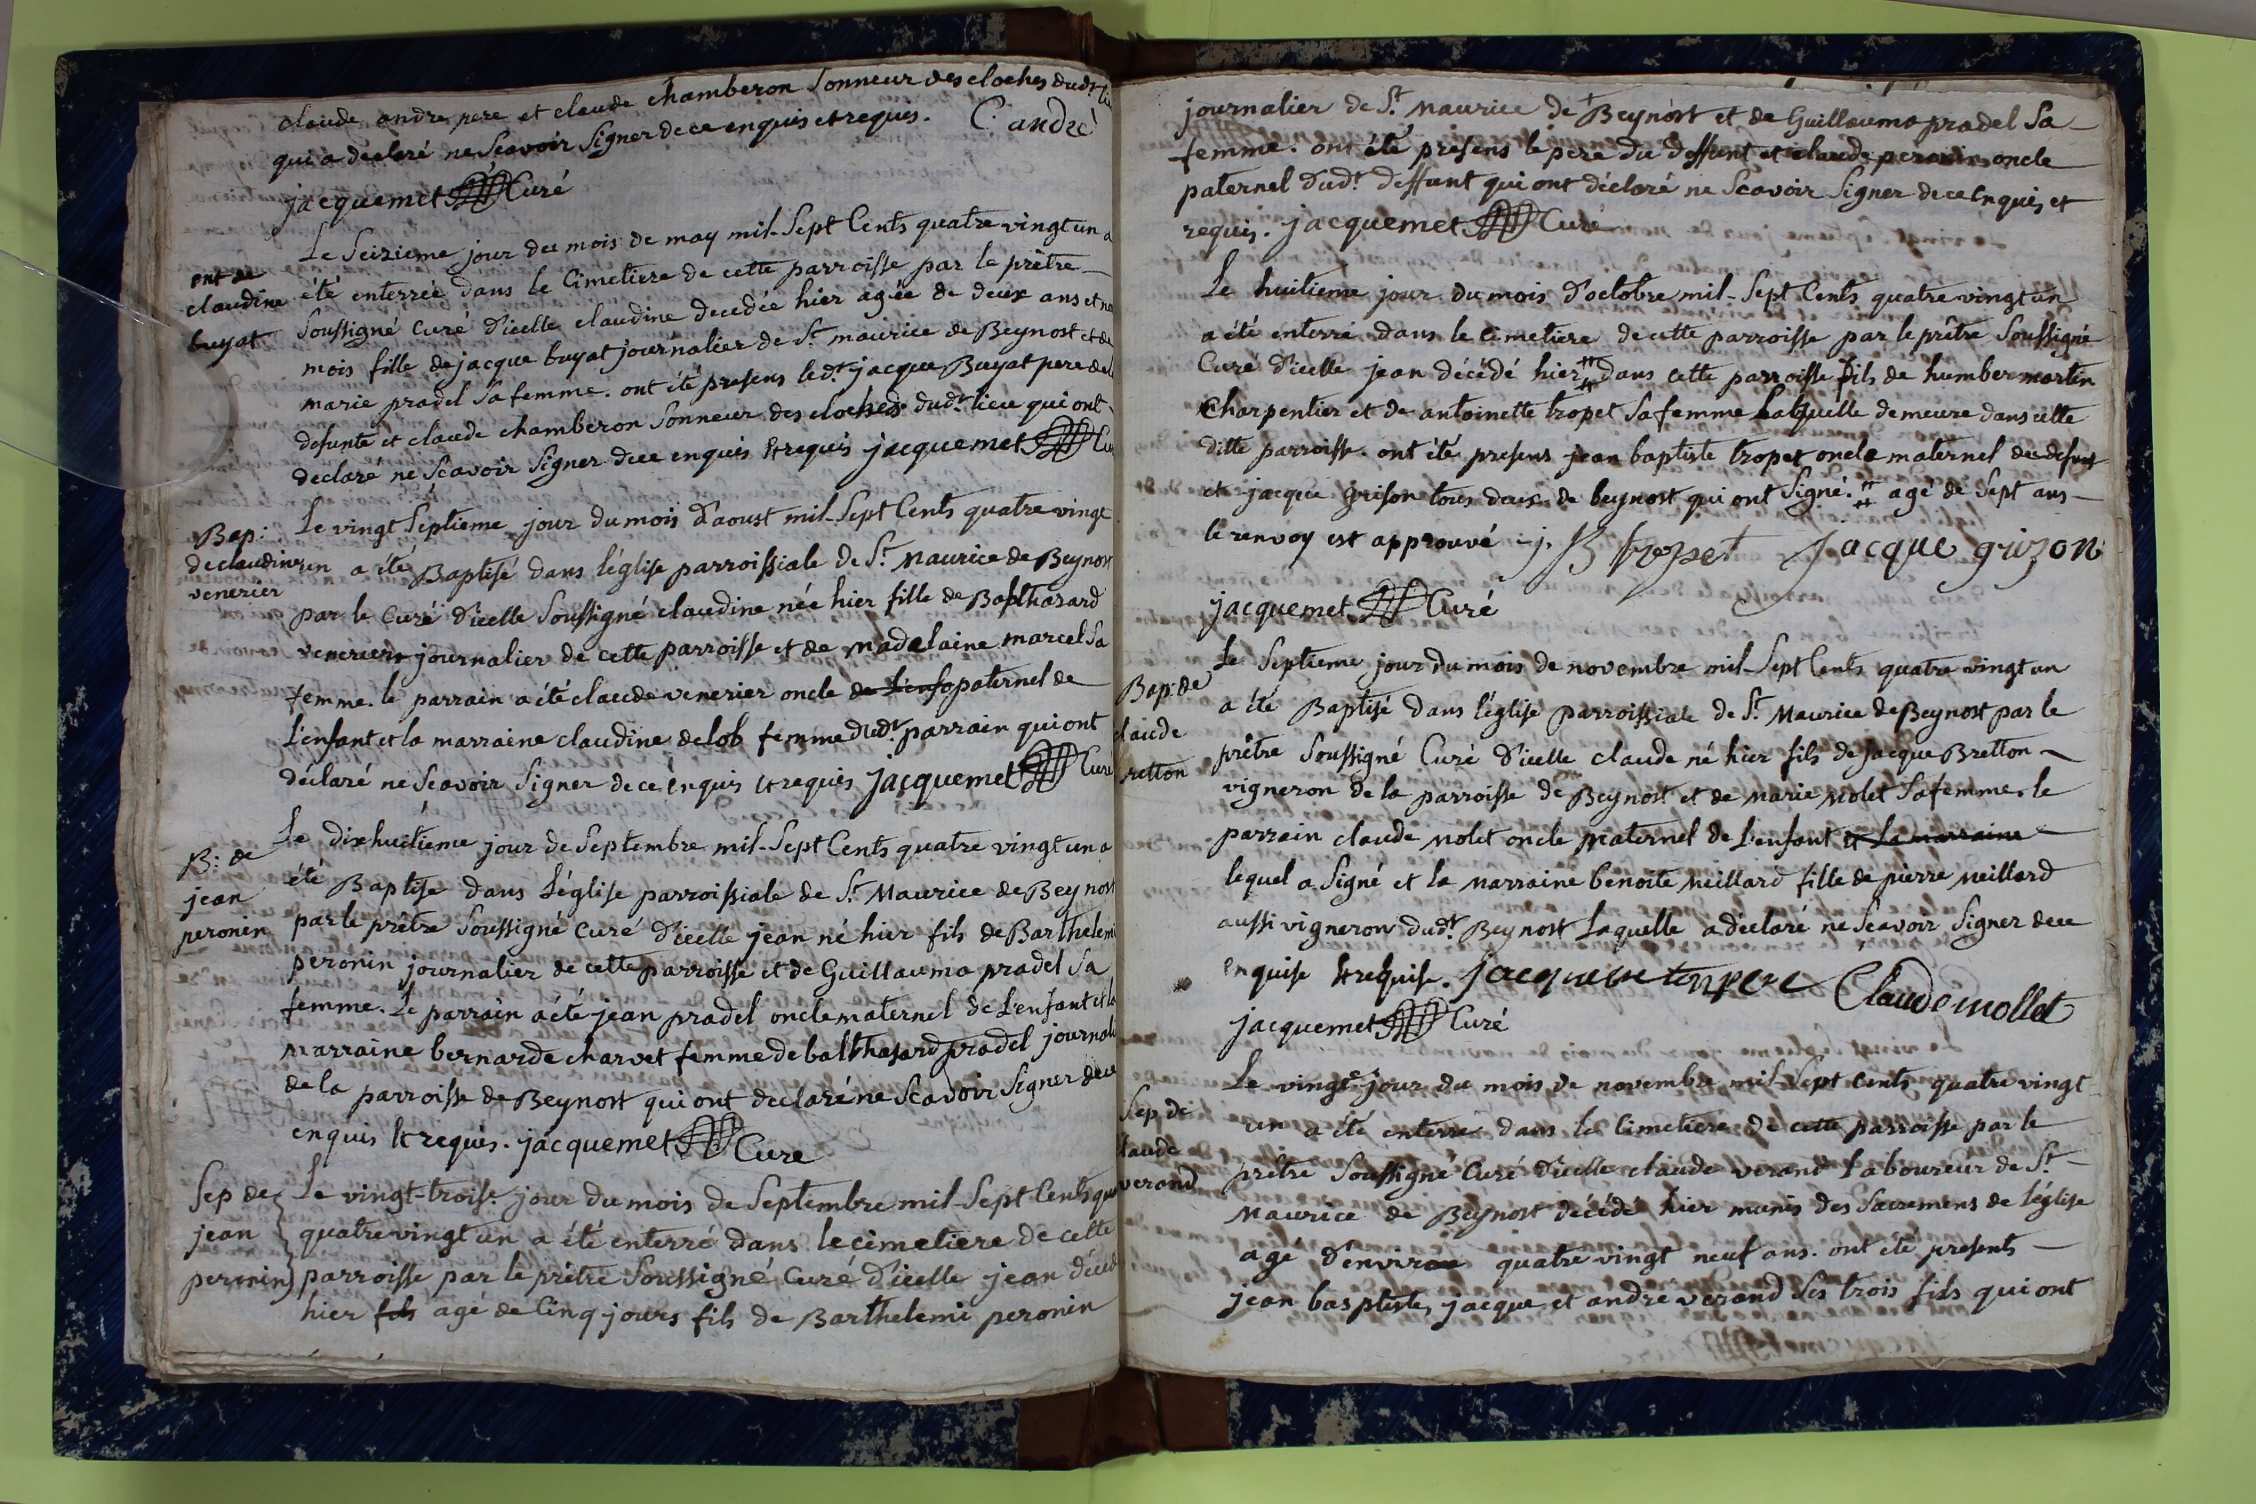 claude andre pere et claude chamberon Sonneur des cloches dudt
qui a declaré ne Scavoir Signer de ce enquis et requis. C. andrè
jacquemet Curé
Le Seizieme jour du mois de may mil-Sept Cents quatre vingt un a
ent de
claudine
buyat
été enterrée dans le Cimetiere de cette parroisse par le prêtre
Soussigné Curé d'icelle claudine decedée hier agée de deux ans et
mois fille de jacque buyat journalier de St. maurice de Beynost et de
marie pradel Sa femme. ont été presens ledt. jacque Buyat pere de
defunte et claude chamberon Sonneur des cloches dudt. lieu qui ont
declaré ne Scavoir Signer de ce enquis et requis jacquemet
Bap:
de claudine
venerier
Le vingt Septieme jour du mois d'aoust mil-Sept Cents quatre vingt
un a été Baptisé dans l'église parroissiale de St. Maurice de Beynost
par le Curé d'icelle Soussigné claudine née hier fille de Balthasard
venerier journalier de cette parroisse et de madelaine marcel Sa
femme. le parrain a été claude venerier oncle de L'enf paternel de
L'enfant et la marraine claudine delob femme dudt. parrain qui ont
déclaré ne Scavoir Signer de ce enquis et requis jacquemet Curé
B: de
jean
peronin
Le dixhuitieme jour de Septembre mil-Sept Cents quatre vingt un a
été Baptise dans L'église parroissiale de St. Maurice de Beynost
par le prêtre Soussigné Curé d'icelle jean né hier fils de Barthelemi
peronin journalier de cette parroisse et de Guillauma pradel Sa
femme. Le parrain a été jean pradel oncle maternel de L'enfant et la
marraine bernarde charvet femme de balthasard pradel journali
de la parroisse de Beynost qui ont declaré ne Scavoir Signer de ce
enquis et requis. jacquemet Cure
Sep de
jean
peronin
Le vingt-troise. jour du mois de Septembre mil-Sept Cents qua
quatre vingt un a été enterré dans le cimetiere de cette
parroisse par le prêtre Soussigné Curé d'icelle jean décedé
hier fils agé de Cinq jours fils de Barthelemi peronin
journalier de St. Maurice de Beynost et de Guillauma pradel Sa
femme. ont été presens le pere du deffunt et claude peronin oncle
paternel dudt. deffunt qui ont déclaré ne Scavoir Signer de ce enquis et
requis. jacquemet Curé
Le huitieme jour du mois d'octobre mil-Sept Cents quatre vingt un
a été enterré dans le Cimetiere de cette parroisse par le prêtre Soussigné
Curé d'icelle jean décédé hier # dans cette parroisse fils de humber martin
Charpentier et de antoinette tropet Sa femme Laquelle demeure dans cette
ditte parroisse. ont été presens jean baptiste tropet oncle maternel du defunt
et jacque grison tous deux de beynost qui ont Signé. # agé de Sept ans
le renvoy est approuvé j. B tropet jacque grizon
jacquemet Curé
Bap: de
claude
bretton
Le Septieme jour du mois de novembre mil-Sept Cents quatre vingt un
a été Baptisé dans l'église parroissiale de St. Maurice de Beynost par le
prêtre Soussigné Curé d'icelle claude né hier fils de Jacque Bretton
vigneron de la parroisse de Beynost et de Marie Molet Sa femme. le
parrain claude molet oncle maternel de L'enfant et La marraine
lequel a Signé et la marraine benoite meillard fille de pierre meillard
aussi vigneron dudt. Beynost Laquelle a déclaré ne Scavoir Signer de ce
enquise et requise. Claude mollet
jacquemet Curé
Sep de
claude
verand
Le vingte. jour du mois de novembre mil-Sept Cents quatre vingt
un a été enterré dans le Cimetiere de cette parroisse par le
prêtre Soussigné Curé d'icelle claude verand Laboureur de St.
Maurice de Beynost décédé hier munis des Sacremens de l'église
agé d'environ quatre vingt neuf ans. ont été presents
jean basptiste, jacque et andre verand Ses trois fils qui ont